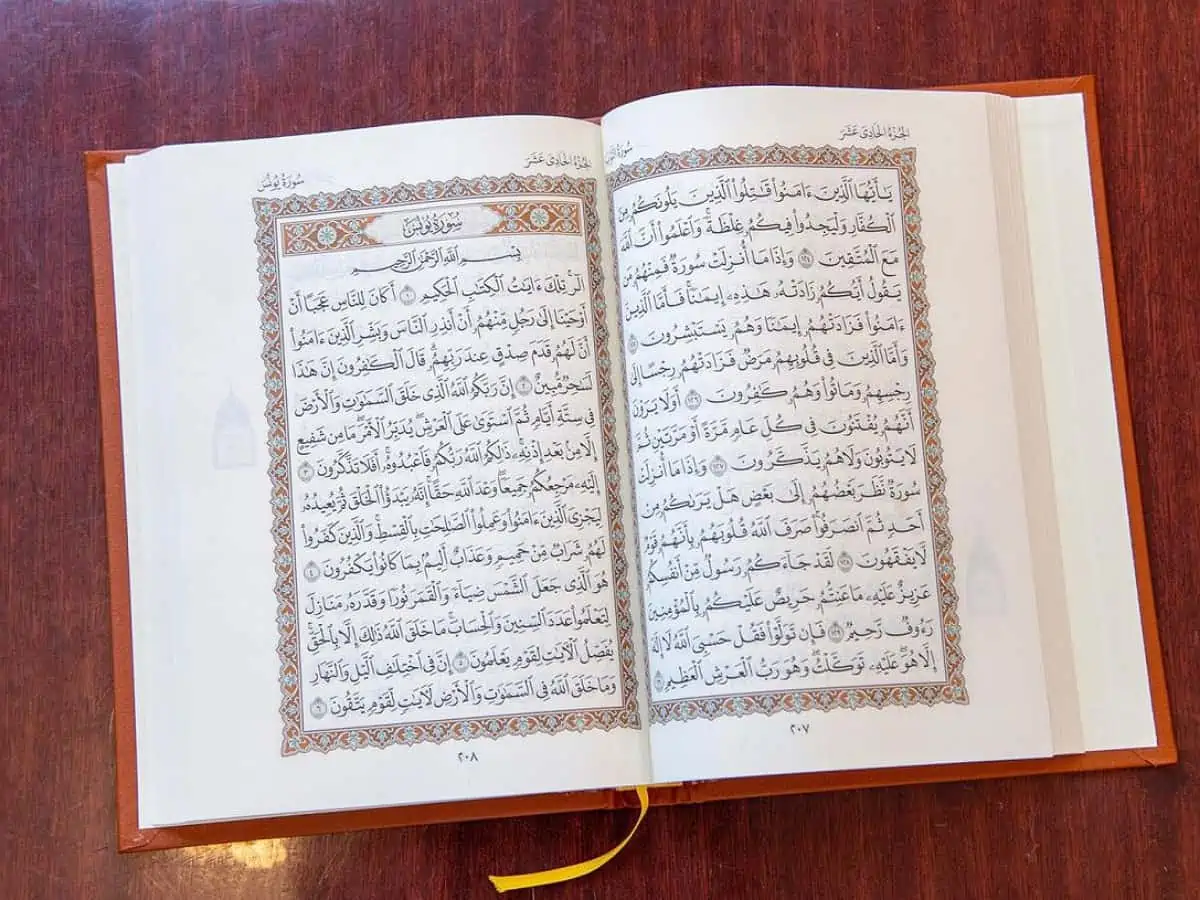 الجزء الحادي عشر
سورة التوبة
يَٰٓأَيُّهَا ٱلَّذِينَ ءَامَنُوا۟ قَٰتِلُوا۟ ٱلَّذِينَ يَلُونَكُم مِّنَ
ٱلْكُفَّارِ وَلْيَجِدُوا۟ فِيكُمْ غِلْظَةً ۚ وَٱعْلَمُوٓا۟ أَنَّ ٱللَّهَ
مَعَ ٱلْمُتَّقِينَ ١٢٣ وَإِذَا مَآ أُنزِلَتْ سُورَةٌ فَمِنْهُم مَّن
يَقُولُ أَيُّكُمْ زَادَتْهُ هَٰذِهِۦٓ إِيمَٰنًا ۚ فَأَمَّا ٱلَّذِينَ
ءَامَنُوا۟ فَزَادَتْهُمْ إِيمَٰنًا وَهُمْ يَسْتَبْشِرُونَ ١٢٤
وَأَمَّا ٱلَّذِينَ فِى قُلُوبِهِم مَّرَضٌ فَزَادَتْهُمْ رِجْسًا إِلَىٰ
رِجْسِهِمْ وَمَاتُوا۟ وَهُمْ كَٰفِرُونَ ١٢٥ أَوَلَا يَرَوْنَ
أَنَّهُمْ يُفْتَنُونَ فِى كُلِّ عَامٍ مَّرَّةً أَوْ مَرَّتَيْنِ ثُمَّ
لَا يَتُوبُونَ وَلَا هُمْ يَذَّكَّرُونَ ١٢٦ وَإِذَا مَآ أُنزِلَتْ
سُورَةٌ نَّظَرَ بَعْضُهُمْ إِلَىٰ بَعْضٍ هَلْ يَرَىٰكُم مِّنْ
أَحَدٍ ثُمَّ ٱنصَرَفُوا۟ ۚ صَرَفَ ٱللَّهُ قُلُوبَهُم بِأَنَّهُمْ قَوْمٌ
لَّا يَفْقَهُونَ ١٢٧ لَقَدْ جَآءَكُمْ رَسُولٌ مِّنْ أَنفُسِكُمْ
عَزِيزٌ عَلَيْهِ مَا عَنِتُّمْ حَرِيصٌ عَلَيْكُم بِٱلْمُؤْمِنِينَ
رَءُوفٌ رَّحِيمٌ ١٢٨ فَإِن تَوَلَّوْا۟ فَقُلْ حَسْبِىَ ٱللَّهُ لَآ إِلَٰهَ
إِلَّا هُوَ ۖ عَلَيْهِ تَوَكَّلْتُ ۖ وَهُوَ رَبُّ ٱلْعَرْشِ ٱلْعَظِيمِ ١٢٩
٢٠٧
الجزء الحادي عشر
سورة يونس
سورة يونس
بِسْمِ ٱللَّهِ ٱلرَّحْمَٰنِ ٱلرَّحِيمِ
الٓر ۚ تِلْكَ ءَايَٰتُ ٱلْكِتَٰبِ ٱلْحَكِيمِ ١ أَكَانَ لِلنَّاسِ عَجَبًا أَنْ
أَوْحَيْنَآ إِلَىٰ رَجُلٍ مِّنْهُمْ أَنْ أَنذِرِ ٱلنَّاسَ وَبَشِّرِ ٱلَّذِينَ ءَامَنُوٓا۟
أَنَّ لَهُمْ قَدَمَ صِدْقٍ عِندَ رَبِّهِمْ ۗ قَالَ ٱلْكَٰفِرُونَ إِنَّ هَٰذَا
لَسَٰحِرٌ مُّبِينٌ ٢ إِنَّ رَبَّكُمُ ٱللَّهُ ٱلَّذِى خَلَقَ ٱلسَّمَٰوَٰتِ وَٱلْأَرْضَ
فِى سِتَّةِ أَيَّامٍ ثُمَّ ٱسْتَوَىٰ عَلَى ٱلْعَرْشِ ۖ يُدَبِّرُ ٱلْأَمْرَ ۖ مَا مِن شَفِيعٍ
إِلَّا مِنۢ بَعْدِ إِذْنِهِۦ ۚ ذَٰلِكُمُ ٱللَّهُ رَبُّكُمْ فَٱعْبُدُوهُ ۚ أَفَلَا تَذَكَّرُونَ ٣
إِلَيْهِ مَرْجِعُكُمْ جَمِيعًا ۖ وَعْدَ ٱللَّهِ حَقًّا ۚ إِنَّهُۥ يَبْدَؤُا۟ ٱلْخَلْقَ ثُمَّ يُعِيدُهُۥ
لِيَجْزِىَ ٱلَّذِينَ ءَامَنُوا۟ وَعَمِلُوا۟ ٱلصَّٰلِحَٰتِ بِٱلْقِسْطِ ۚ وَٱلَّذِينَ كَفَرُوا۟
لَهُمْ شَرَابٌ مِّنْ حَمِيمٍ وَعَذَابٌ أَلِيمٌۢ بِمَا كَانُوا۟ يَكْفُرُونَ ٤
هُوَ ٱلَّذِى جَعَلَ ٱلشَّمْسَ ضِيَآءً وَٱلْقَمَرَ نُورًا وَقَدَّرَهُۥ مَنَازِلَ
لِتَعْلَمُوا۟ عَدَدَ ٱلسِّنِينَ وَٱلْحِسَابَ ۚ مَا خَلَقَ ٱللَّهُ ذَٰلِكَ إِلَّا بِٱلْحَقِّ ۚ
يُفَصِّلُ ٱلْءَايَٰتِ لِقَوْمٍ يَعْلَمُونَ ٥ إِنَّ فِى ٱخْتِلَٰفِ ٱلَّيْلِ وَٱلنَّهَارِ
وَمَا خَلَقَ ٱللَّهُ فِى ٱلسَّمَٰوَٰتِ وَٱلْأَرْضِ لَءَايَٰتٍ لِّقَوْمٍ يَتَّقُونَ ٦
٢٠٨